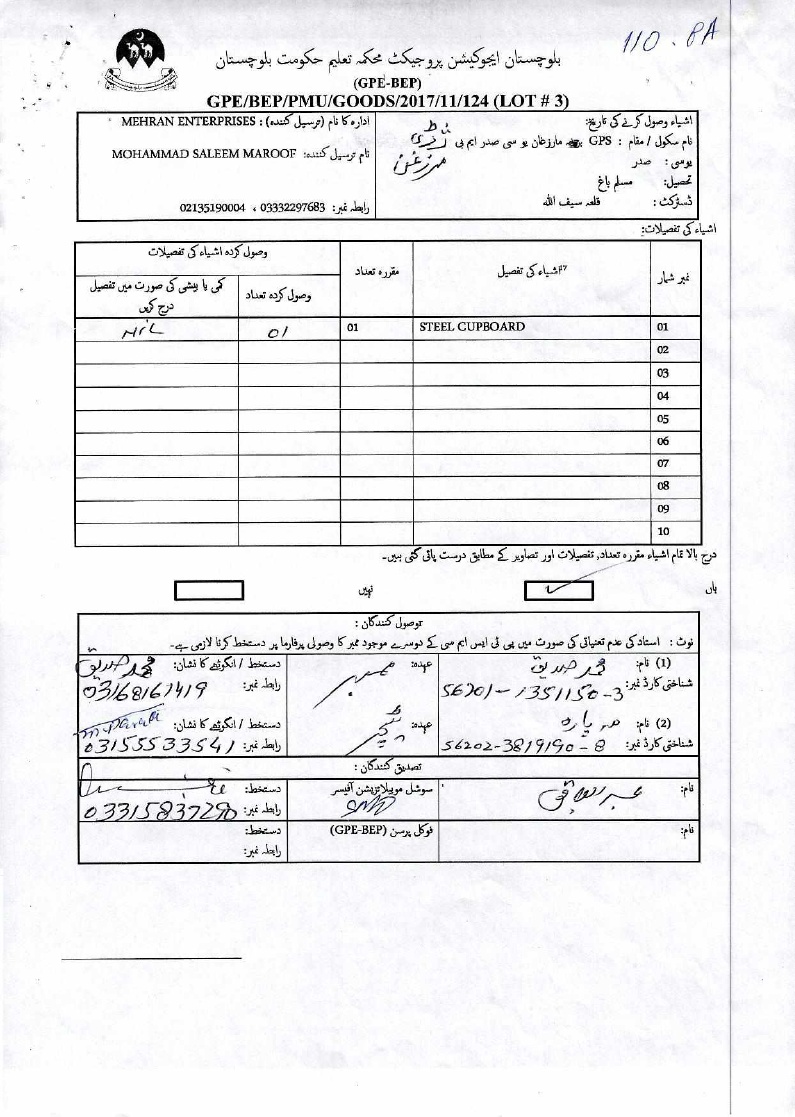 110 . PA
بلوچستان ایجوکیشن پروجیکٹ محکمہ تعلیم حکومت بلوچستان
(GPE-BEP)
GPE/BEP/PMU/GOODS/2017/11/124 (LOT # 3)
اشیاء وصول کرنے کی تاریخ:
نام سکول / مقام : GPS مارزغان یو سی صدر ایم بی
مرزغن
یوسی : صدر
تحصیل: مسلم باغ
ڈسٹرکٹ: قلعہ سیف اللہ
ادارہ کا نام (ترسیل کنندہ) : MEHRAN ENTERPRISES
نام ترسیل کنندہ: MOHAMMAD SALEEM MAROOF
رابطہ نمبر: 03332297683 ، 02135190004
اشیاء کی تفصیلات:
نمبر شمار اشیاء کی تفصیل مقررہ تعداد وصول کردہ اشیاء کی تفصیلات
وصول کردہ تعداد کمی یا بیشی کی صورت میں تفصیل درج کریں
01 STEEL CUPBOARD 01 01 NIL
02
03
04
05
06
07
08
09
10
درج بالا تمام اشیاء مقررہ تعداد, تفصیلات اور تصاویر کے مطابق درست پائی گئی ہیں۔
ہاں نہیں
توصول کنندگان :
نوٹ : استاد کی عدم تعنیاتی کی صورت میں پی ٹی ایس ایم سی کے دوسرے موجود ممبر کا وصولی پرفارما پر دستخط کرنا لازمی ہے۔
(1) نام: محمد صدیق عہدہ: ممبر دستخط / انگوٹھے کا نشان: محمد صدیق
شناختی کارڈ نمبر: 56201-1351150-3 رابطہ نمبر: 03168161419
(2) نام: مہ پارہ عہدہ: ٹیچر دستخط / انگوٹھے کا نشان:
شناختی کارڈ نمبر: 56202-3819190-8 رابطہ نمبر: 03155533541
تصدیق کنندگان :
نام: عبدالباقی سوشل موبیلائزیشن آفیسر دستخط:
SMO رابطہ نمبر: 03315837290
نام: فوکل پرسن (GPE-BEP) دستخط:
رابطہ نمبر: